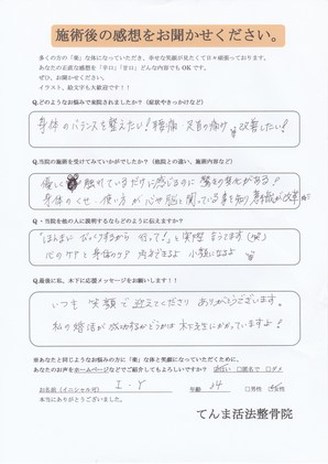 施術後の感想をお聞かせください。
多くの方の「楽」な体になっていただき、幸せな笑顔が見たくて日々頑張っております。
あなたの正直な感想を「辛口」「甘口」どんな内容でもOKです。
ぜひ、お聞かせください。
イラスト、絵文字も大歓迎です！！
Q.どのようなお悩みで来院されましたか？（症状やきっかけなど）
身体のバランスを整えたい！腰痛 足首の痛み 改善したい！
Q.当院の施術を受けてみていかがでしたか？（他院との違い、施術内容など）
優しく 触れているだけに感じるのに 驚きの変化がある！
身体のくせ、使い方が心や脳と関っている事を知り意識が改革
Q・当院を他の人に説明するならどのように伝えますか？
「ほんまに びっくりするから 行って！」と実際 言うてます(笑)
心のケアと身体のケア 両方できるよ 小顔になるよ
Q.最後に私、木下に応援メッセージをお願いします！！
いつも 笑顔で迎えてくださり ありがとうございます。
私の婚活が成功するかどうかは木下先生にかかっていますよ！
※あなたと同じようなお悩みの方に「楽」な体と笑顔になっていただくために、
あなたのお声をホームページなどでご紹介してもよろしいですか？ はい □匿名で □ダメ
お名前（イニシャル可） I・Y 年齢 24 □男性
本当にありがとうございました。
てんま活法整骨院